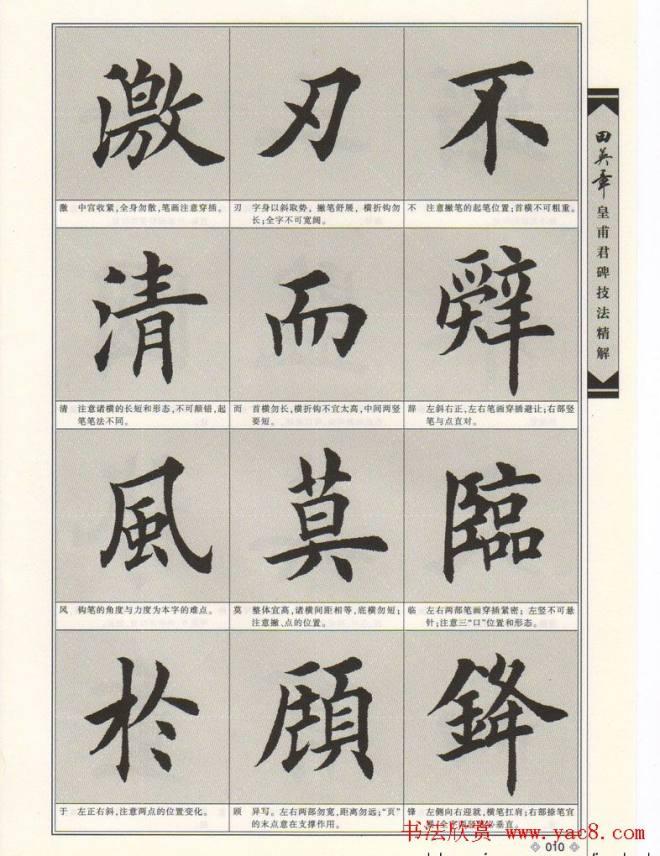 田英章
皇甫君碑技法精解
不
不 注意撇笔的起笔位置;首横不可粗重。
刃
刃 字身以斜取势,撇笔舒展,横折钩勿
长;全字不可宽阔。
激
激 中宫收紧,全身勿散,笔画注意穿插。
辤
辞 左斜右正,左右笔画穿插避让;右部竖
笔与点直对。
而
而 首横勿长,横折钩不宜太高,中间两竖
要短。
清
清 注意诸横的长短和形态,不可颠错,起
笔笔法不同。
臨
临 左右两部笔画穿插紧密;左竖不可悬
针;注意三“口”位置和形态。
莫
莫 整体宜高,诸横间距相等,底横勿短;
注意撇、点的位置。
風
风 钩笔的角度与力度为本字的难点。
鋒
锋 左侧向右迎就,横笔扛肩;右部捺笔宜
顧
顾 异写。左右两部勿宽,距离勿远;“页”
的末点意在支撑作用。
於
于 左正右斜,注意两点的位置变化。
010
书法欣赏 www.yac8.com